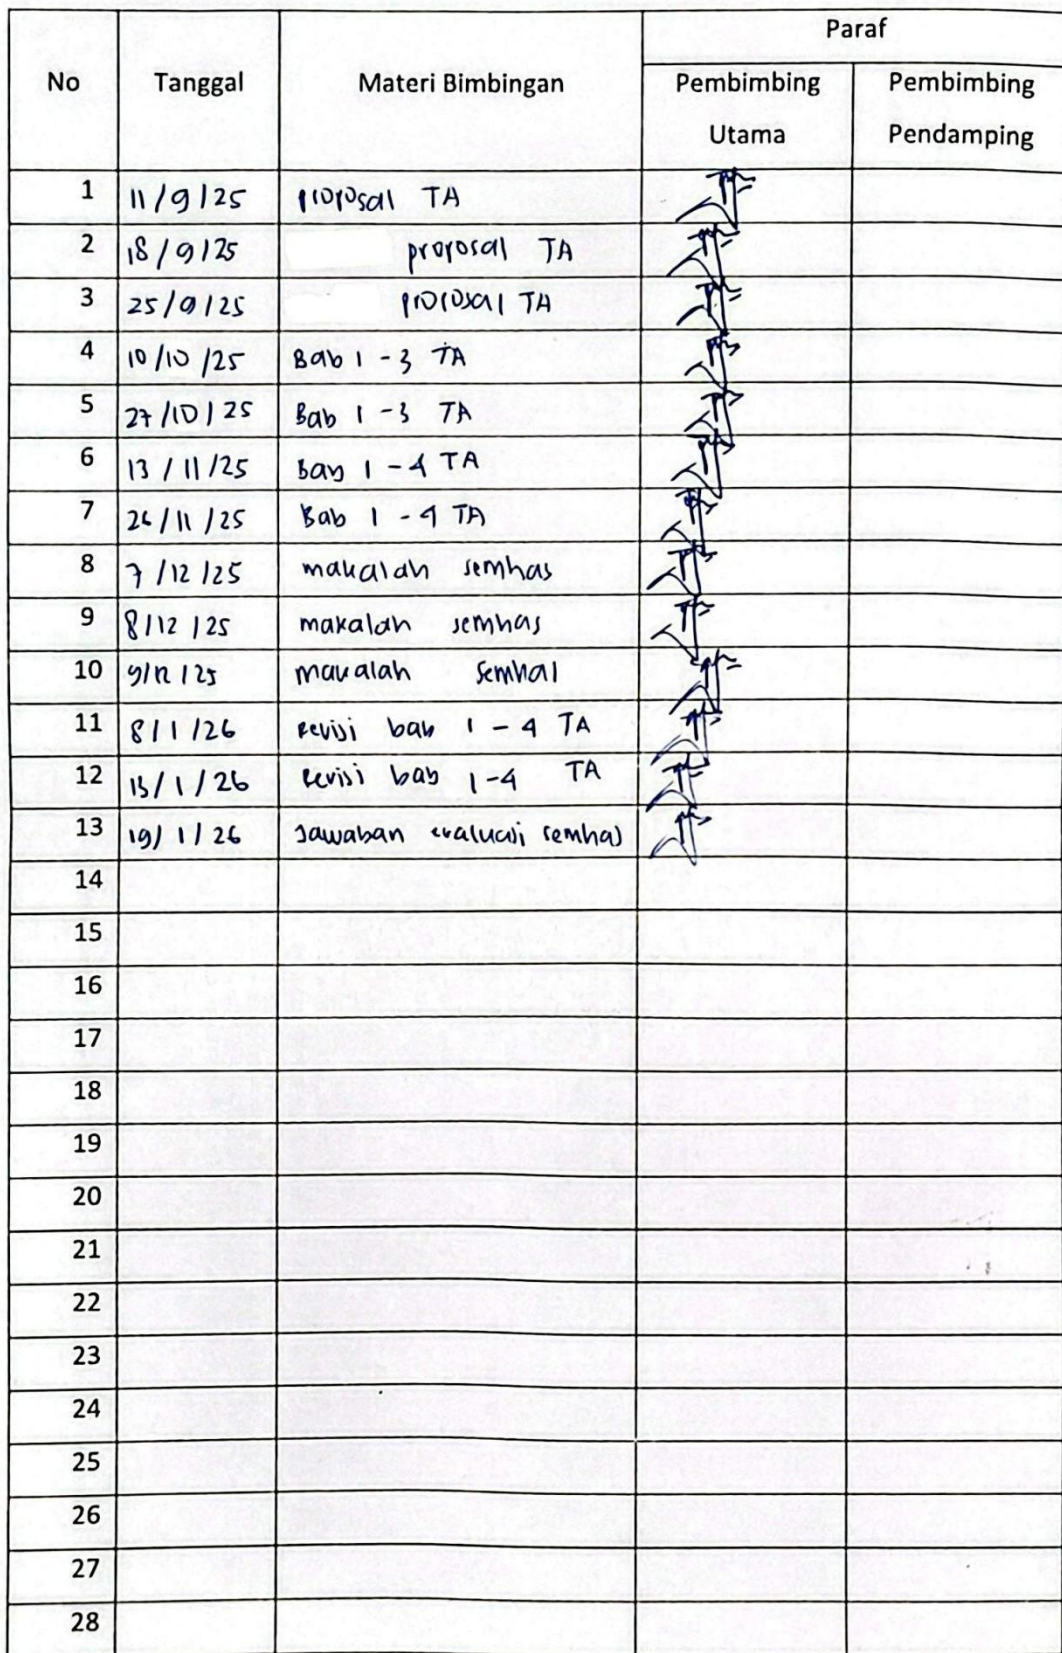 No Tanggal Materi Bimbingan Paraf
Pembimbing Utama Pembimbing Pendamping
1 11/9/25 proposal TA
2 18/9/25 proposal TA
3 25/9/25 proposal TA
4 10/10/25 Bab 1-3 TA
5 27/10/25 Bab 1-3 TA
6 13/11/25 Bab 1-4 TA
7 26/11/25 Bab 1-4 TA
8 7/12/25 makalah semhas
9 8/12/25 makalah semhas
10 9/12/25 makalah semhas
11 8/1/26 Revisi bab 1-4 TA
12 13/1/26 Revisi bab 1-4 TA
13 19/1/26 Jawaban evaluasi semhas
14
15
16
17
18
19
20
21
22
23
24
25
26
27
28